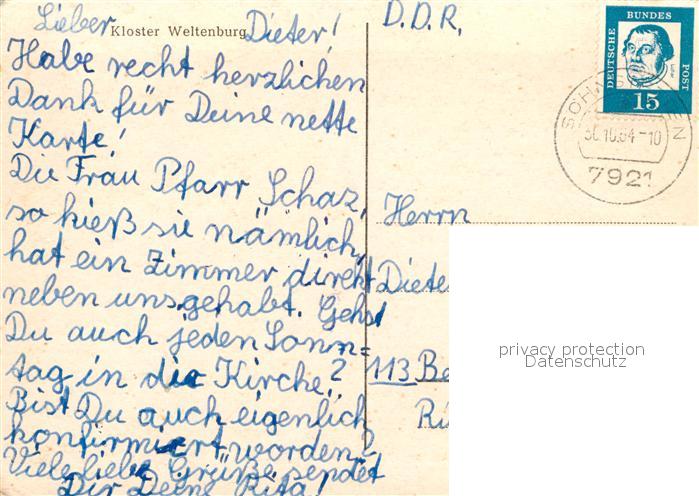 Lieber Dieter!
Kloster Weltenburg
Habe recht herzlichen
Dank für Deine nette
Karte!
Die Frau Pfarr Schaz,
so hieß sie nämlich,
hat ein Zimmer direkt
neben uns gehabt. Gehst
Du auch jeden Sonn=
tag in die Kirche?
Bist Du auch eigenlich
konfirmiert worden?
Viele liebe Grüße sendet
Dir Deine Rita!
D.D.R.
DEUTSCHE BUNDES POST
15
30.10.64-10
7921
Herrn
Diete
113 Be
privacy protection
Datenschutz